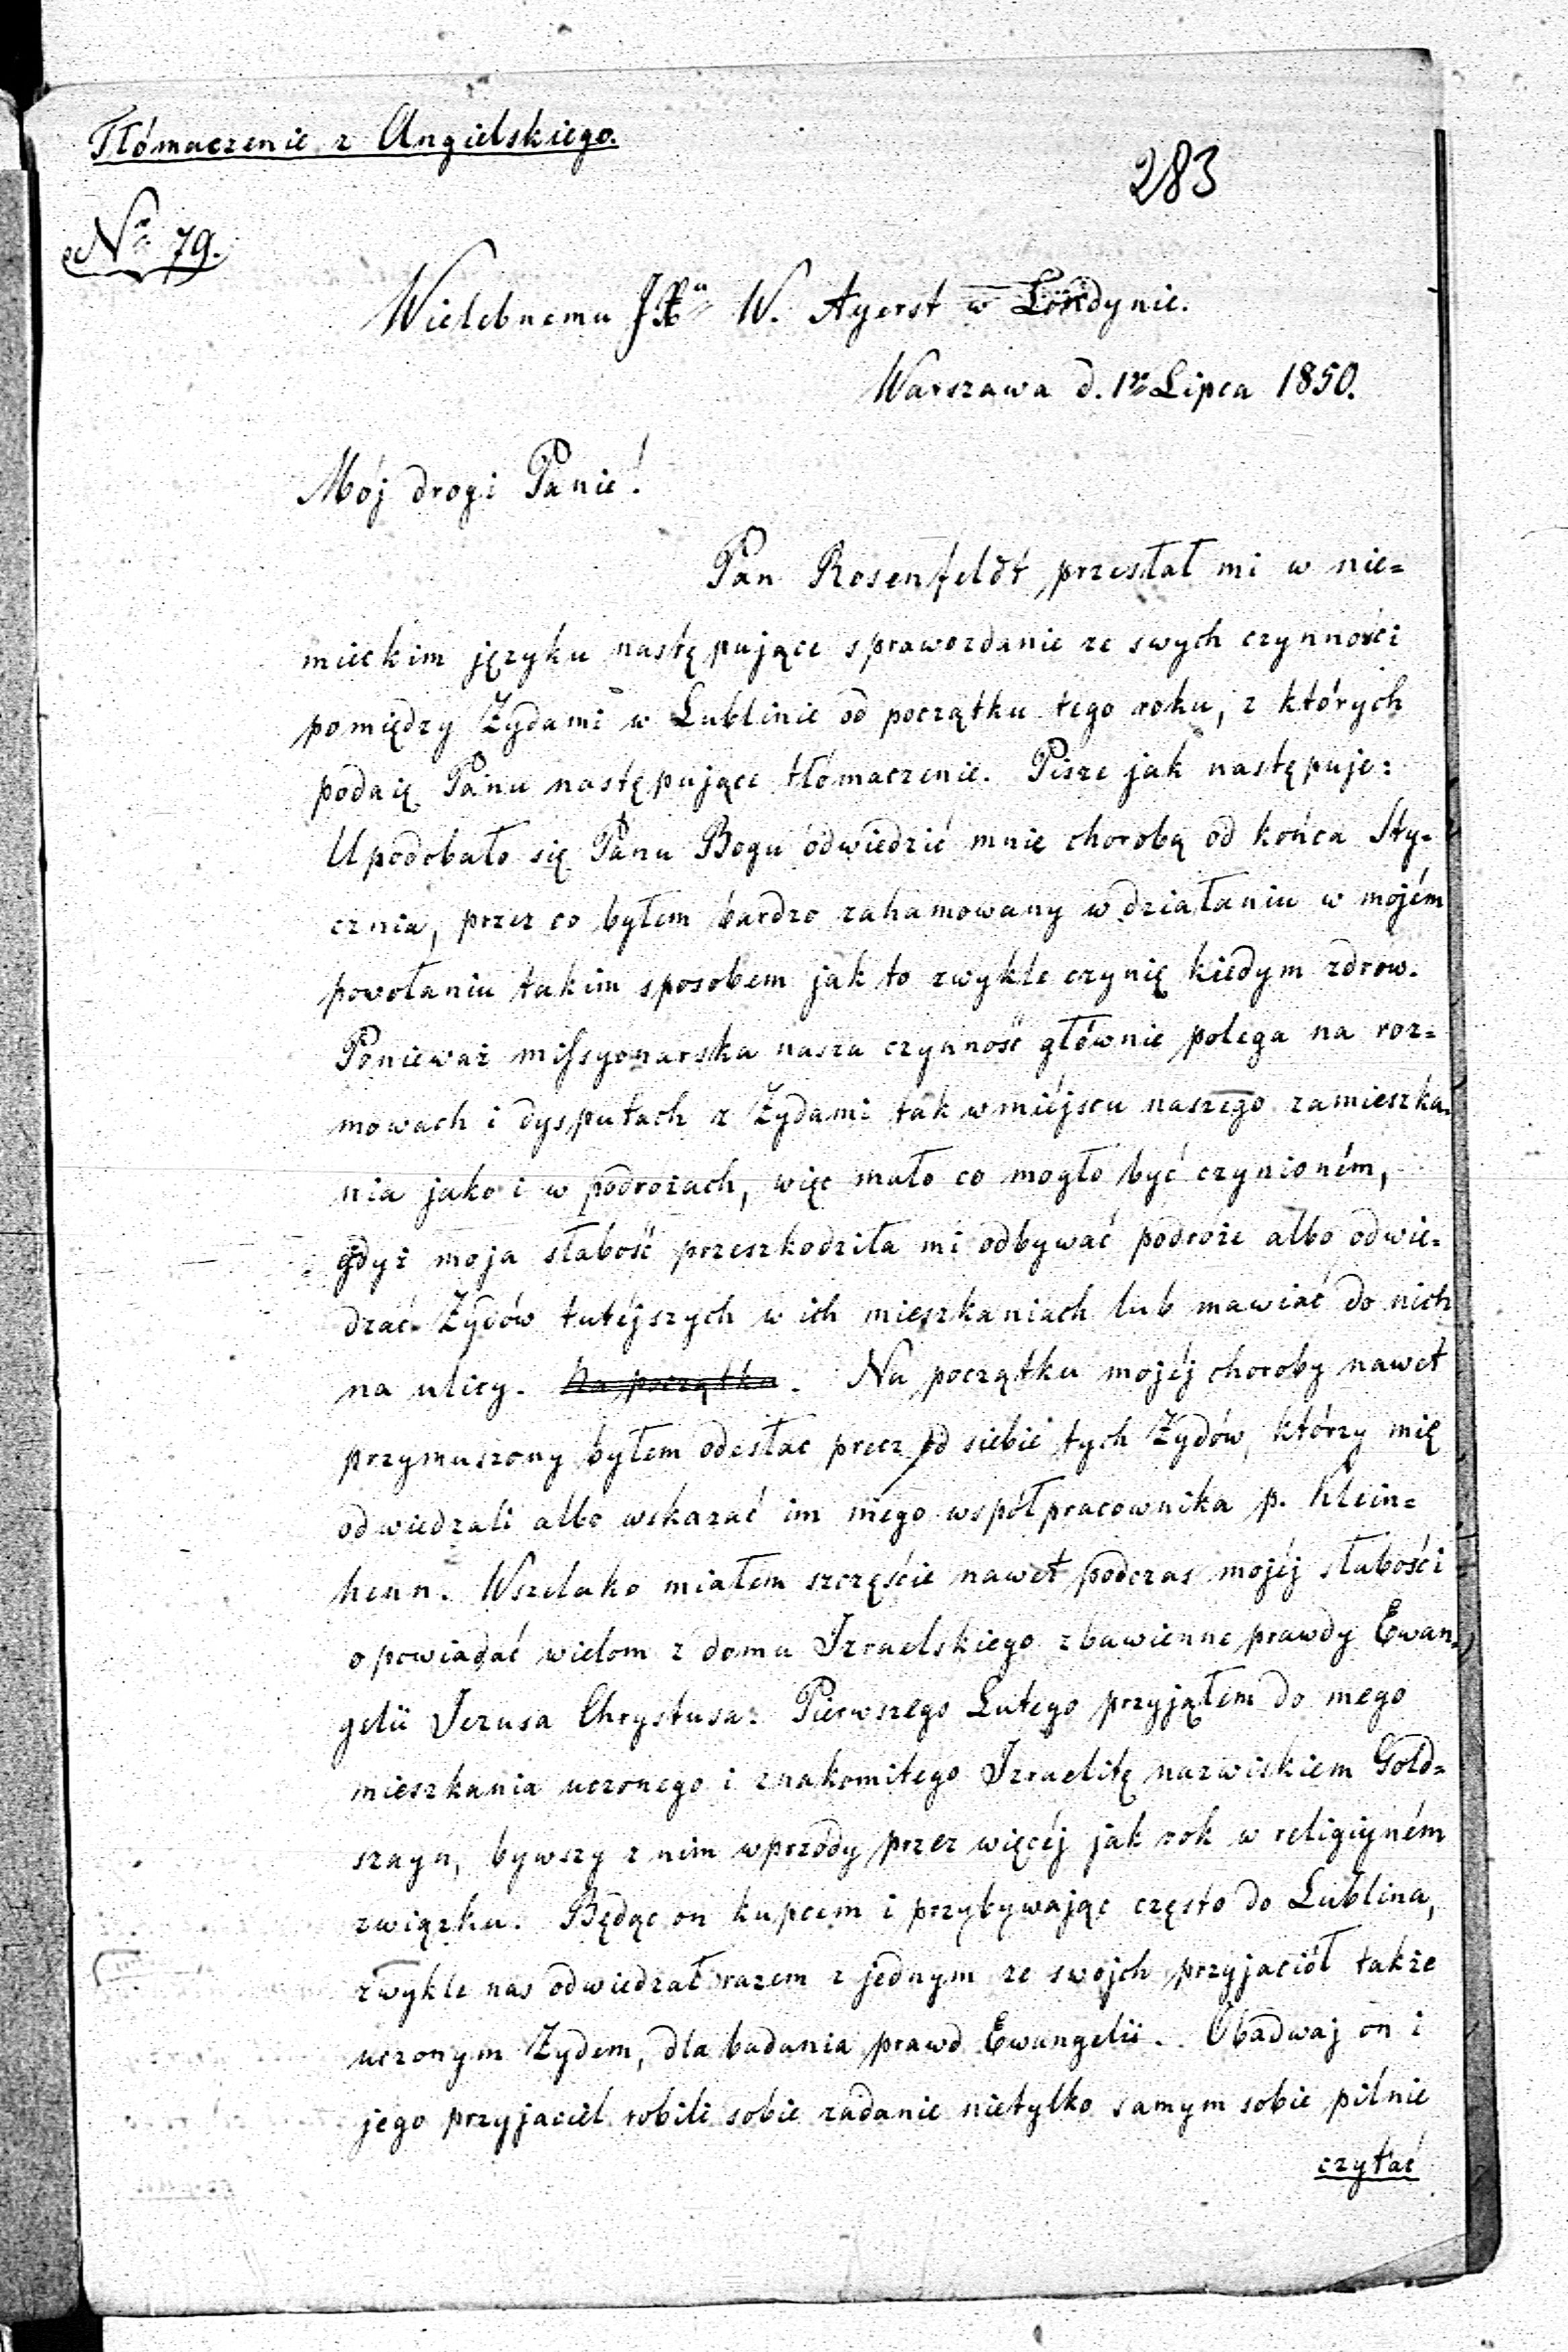 Tłómaczenie z Angielskiego.
283
No 79.
Wielebnemu JX W. Ayerst w Londynie.
Warszawa d. 1go Lipca 1850.
Mój drogi Panie!
Pan Rosenfeldt przesłał mi w nie=
mieckim języku następujące sprawozdanie ze swych czynności
pomiędzy Żydami w Lublinie od początku tego roku, z których
podaię Panu następujące tłómaczenie. Pisze jak następuje:
Upodobało się Panu Bogu odwiedzić mnie chorobą od końca Sty=
cznia, przez co byłem bardzo zahamowany w działaniu w mojém
powołaniu takim sposobem jak to zwykle czynię kiedym zdrow.
Ponieważ missyonarska nasza czynność głównie polega na roz=
mowach i dysputach z Żydami tak w miéjscu naszego zamieszka=
nia jako i w podrożach, więc mało co mogło być czynioném,
gdyż moja słabość przeszkodziła mi odbywać podróże albo odwie=
dzać Żydów tutéjszych w ich mieszkaniach lub mawiać do nich
na ulicy. Na początku. Na początku mojéj choroby nawet
przymuszony byłem odesłac precz od siebie tych Żydów, którzy mię
odwiedzali albo wskazać im mego współpracownika p. Klein=
henn. Wszelako miałem szczęście nawet podczas mojéj słabości
opowiadać wielom z domu Izraelskiego zbawienne prawdy Ewan=
gelii Jezusa Chrystusa: Pierwszego Lutego przyjąłem do mego
mieszkania uczonego i znakomitego Izraelitę nazwiskiem Gold=
szayn, bywszy z nim wprzódy przez więcéj jak rok w religiyném
związku. Będąc on kupcem i przybywając często do Lublina,
zwykle nas odwiedzał razem z jednym ze swojch przyjaciół także
uczonym Żydem, dla badania prawd Ewangelii. Obadwaj on i
jego przyjaciel robili sobie zadanie nietylko samym sobie pilnie
czytać